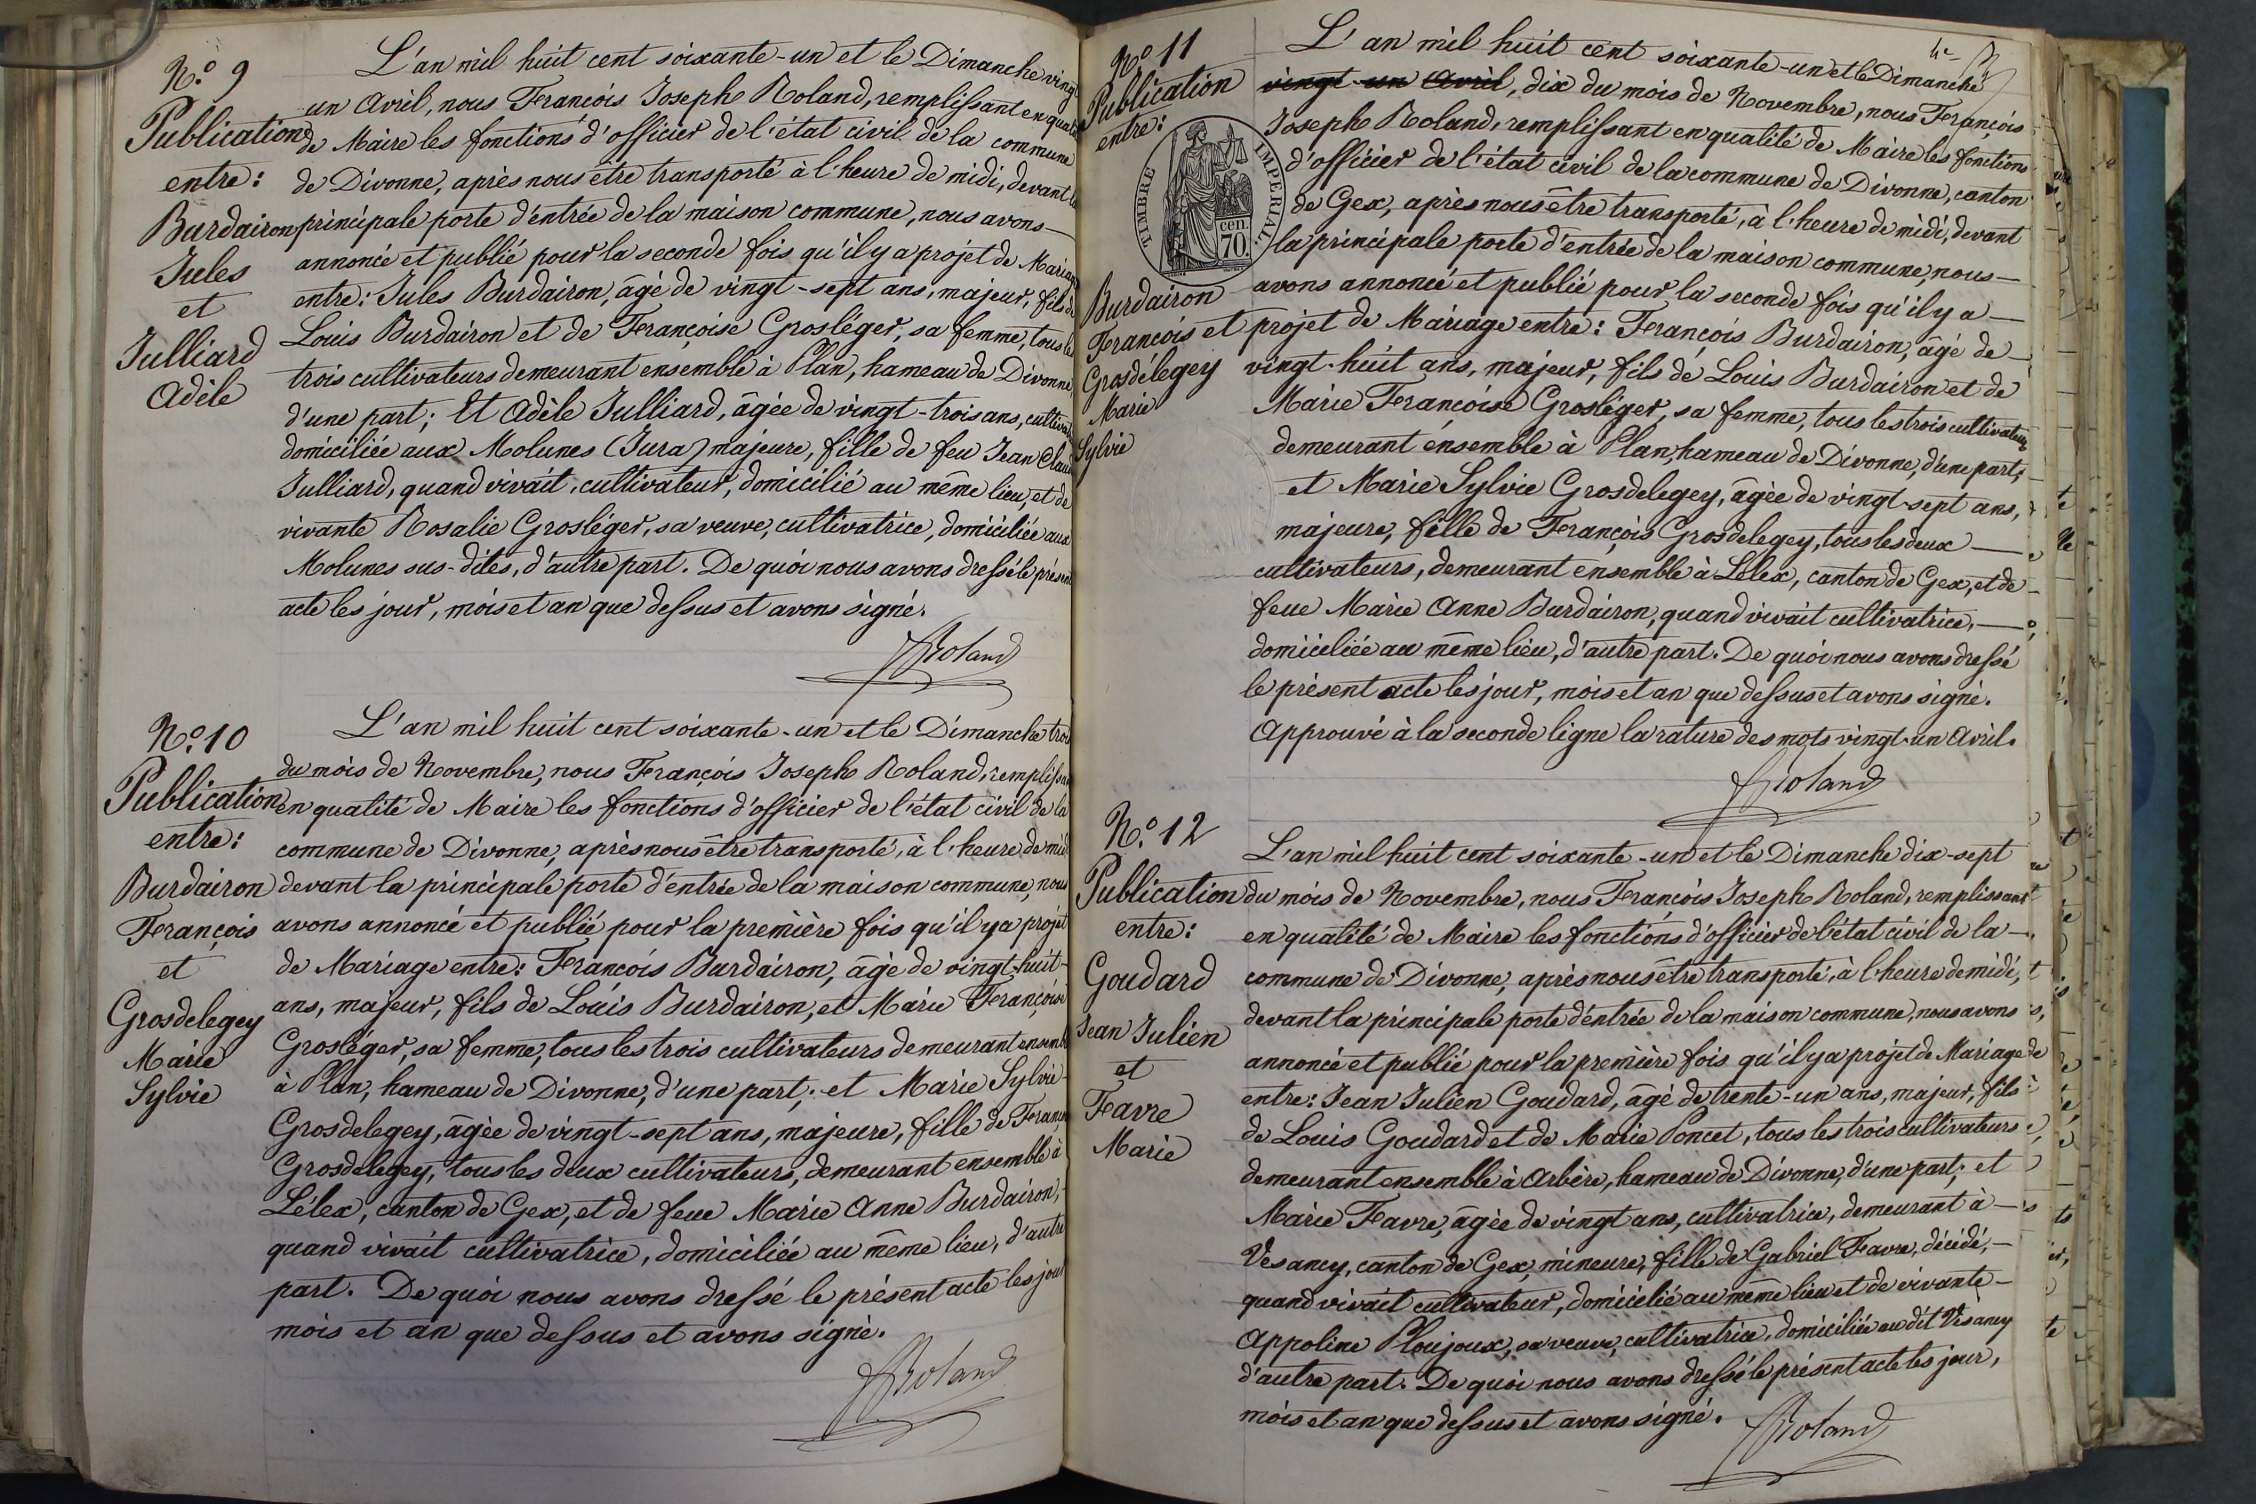 N.o 9
Publication
entre:
Burdairon
Jules
et
Julliard
Adèle
L'an mil huit cent soixante-un et le Dimanche vingt
un Avril, nous François Joseph Roland, remplissant en qualité
de Maire les fonctions d'officier de l'état civil de la commune
de Divonne, après nous être transporté à l'heure de midi, devant la
principale porte d'entrée de la maison commune, nous avons
annoncé et publié pour la seconde fois qu'il y a projet de Mariage
entre: Jules Burdairon, âgé de vingt-sept ans, majeur, fils de
Louis Burdairon et de Françoise Grosléger, sa femme, tous les
trois cultivateurs demeurant ensemble à Plan, hameau de Divonne,
d'une part; Et Adèle Julliard, âgée de vingt-trois ans,
domiciliée aux Molunes (Jura) majeure, fille de feu Jean Claude
Julliard, quand vivait, cultivateur, domicilié au même lieu, et de
vivante Rosalie Grosléger, sa veuve, cultivatrice, domiciliée aux
Molunes sus-dites, d'autre part. De quoi nous avons dressé le présent
acte les jour, mois et an que dessus et avons signé.
Roland
N.o 10
Publication
entre:
Burdairon
François
et
Grosdelegey
Marie
Sylvie
L'an mil huit cent soixante-un et le Dimanche trois
du mois de Novembre, nous François Joseph Roland, remplissant
en qualité de Maire les fonctions d'officier de l'état civil de la
commune de Divonne, après nous être transporté, à l'heure de midi
devant la principale porte d'entrée de la maison commune, nous
avons annoncé et publié pour la première fois qu'il y a projet
de Mariage entre: François Burdairon, âgé de vingt-huit-
ans, majeur, fils de Louis Burdairon, et Marie Françoise
Grosléger, sa femme, tous les trois cultivateurs demeurant ensemble
à Plan, hameau de Divonne, d'une part; et Marie Sylvie
Grosdelegey, âgée de vingt-sept ans, majeure, fille de François
Grosdelegey, tous les deux cultivateurs, demeurant ensemble à
Lélex, canton de Gex, et de feue Marie Anne Burdairon,
quand vivait cultivatrice, domiciliée au même lieu, d'autre
part. De quoi nous avons dressé le présent acte les jour
mois et an que dessus et avons signé.
Roland
N.o 11
Publication
entre:
TIMBRE IMPERIAL
cen.
70.
Burdairon
François et
Grosdélegey
Marie
Sylvie
L'an mil huit cent soixante-un et le Dimanche
vingt-un Avril, dix du mois de Novembre, nous François
Joseph Roland, remplissant en qualité de Maire les fonctions
d'officier de l'état civil de la commune de Divonne, canton
de Gex, après nous être transporté, à l'heure de midi, devant
la principale porte d'entrée de la maison commune, nous
avons annoncé et publié pour la seconde fois qu'il y a
projet de Mariage entre: François Burdairon, âgé de
vingt-huit ans, majeur, fils de Louis Burdairon et de
Marie Françoise Grosléger, sa femme, tous les trois cultivateurs
demeurant ensemble à Plan, hameau de Divonne, d'une part;
et Marie Sylvie Grosdelegey, âgée de vingt-sept ans,
majeure, fille de François Grosdelegey, tous les deux
cultivateurs, demeurant ensemble à Lélex, canton de Gex, et de
feue Marie Anne Burdairon, quand vivait cultivatrice,
domiciliée au même lieu, d'autre part. De quoi nous avons dressé
le présent acte les jour, mois et an que dessus et avons signé.
Approuvé à la seconde ligne la rature des mots vingt-un Avril.
Roland
N.o 12
Publication
entre:
Goudard
Jean Julien
et
Favre
Marie
L'an mil huit cent soixante-un et le Dimanche dix-sept
du mois de Novembre, nous François Joseph Roland, remplissant
en qualité de Maire les fonctions d'officier de l'état civil de la
commune de Divonne, après nous être transporté, à l'heure de midi,
devant la principale porte d'entrée de la maison commune, nous avons
annoncé et publié pour la première fois qu'il y a projet de Mariage
entre: Jean Julien Goudard, âgé de trente-un ans, majeur, fils
de Louis Goudard et de Marie Poncet, tous les trois cultivateurs
demeurant ensemble à Arbère, hameau de Divonne, d'une part; et
Marie Favre, âgée de vingt ans, cultivatrice, demeurant à
Vésancy, canton de Gex, mineure, fille de Gabriel Favre, décédé,
quand vivait cultivateur, domicilié au même lieu et de vivante
Appoline Ploujoux, sa veuve, cultivatrice, domiciliée au dit Vésancy
d'autre part. De quoi nous avons dressé le présent acte les jour,
mois et an que dessus et avons signé.
Roland